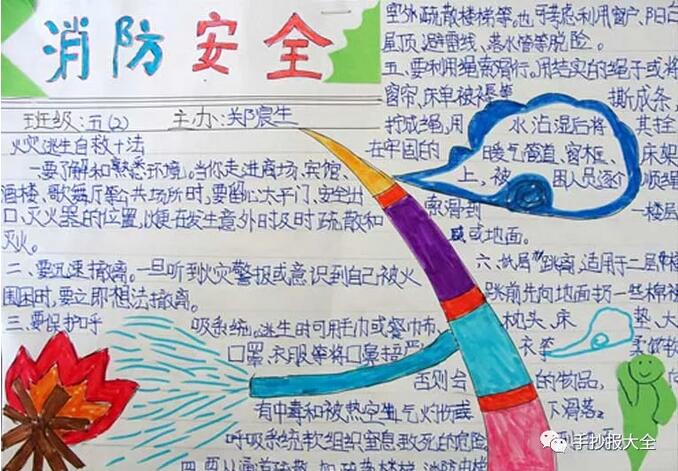 消防安全
班级:五(2) 主办:郑宸生
火灾逃生自救十法
一要了解和熟悉环境。当你走进商场、宾馆、
酒楼、歌舞厅等公共场所时,要留心太平门、安全出
口、灭火器的位置,以便在发生意外时及时疏散和
灭火。
二、要迅速撤离。一旦听到火灾警报或意识到自己被火
围困时,要立即想法撤离。
三、要保护呼
吸系统。逃生时可用毛巾或餐巾布、
口罩、衣服等将口鼻捂严
否则会
有中毒和被热空气灼伤或
呼吸系统软组织窒息致死的危险
四、要从通道疏散
室外疏散楼梯等。也可考虑利用窗户、阳台
屋顶、避雷线、落水管等脱险。
五、要利用绳索滑行。用结实的绳子或将
窗帘、床单被褥等 撕成条,
拧成绳,用 水沾湿后将 其拴
在牢固的 暖气管道、窗框、 床架
上,被 困人员逐个 顺绳
索滑到 一楼层
或地面。
六、低层跳离,适用于二层楼
跳前先向地面扔一些棉被
枕头、床 垫、大
衣等 柔软
的物品,
下滑落。
手抄报大全